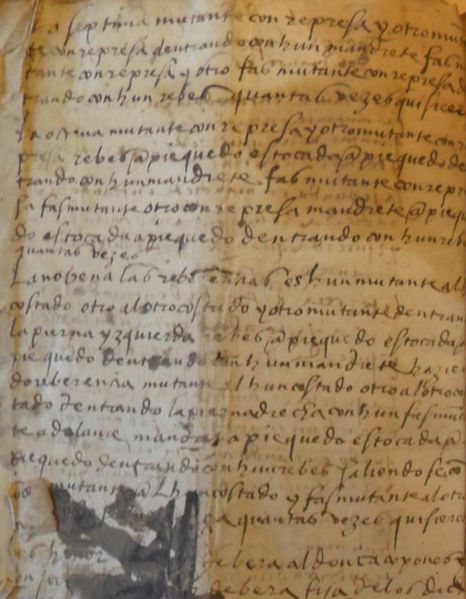 La septima mutante con represa y otro mut
te con represa dentrando con hun mandrete fas m
tante con represa y otro fas mutante con represa d
trando con hun rebes quantas vezes quisiere
La ottava mutante con represa y otro mutante con r
presa rebes a pie quedo estocada a pie quedo de
trando con hun mandrete fas mutante con repre
sa fas mutante otro con represa mandrete a pie qu
do estocada a pie quedo dentrando con hun reb
quantas vezes
La nobena las reberenzias es hun mutante al h
costado otro al otro costado y otro mutante dentran
la pierna yzquierda rebes a pie quedo estocada a
pie quedo dentrando con hun mandrete hazien
do reberenzia mutante al hun costado otro al otro co
tado dentrando la pierna drecha con hun fas mu
te adelante mandret a pie quedo estocada a
pie quedo dentrando con hun rebes saliendo se con
mutante al hun costado y fas mutante al otro
quantas vezes quisiere
honor debera al don capones
debera fija de los dic